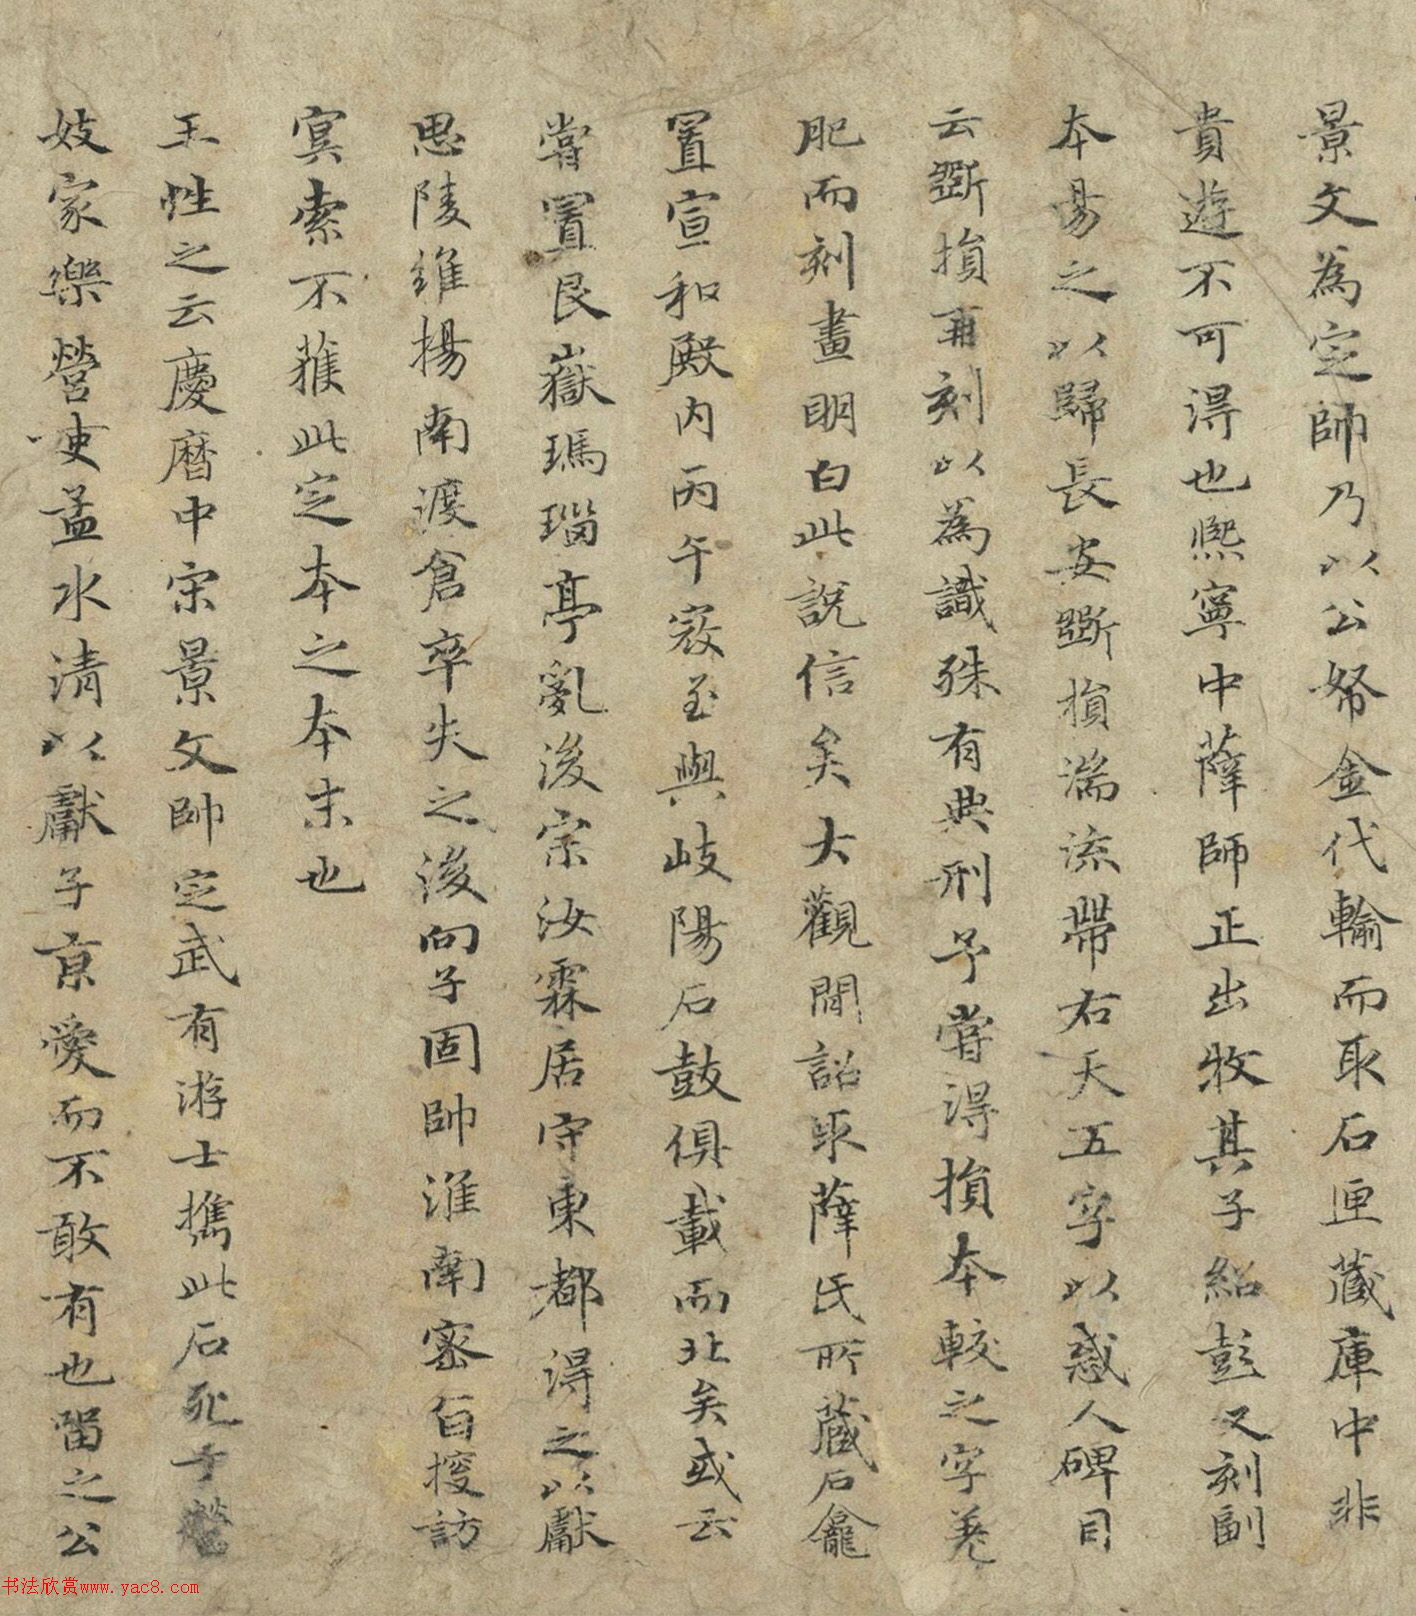 景文為定帥乃以公帑金代輸而取石匣藏庫中非
貴遊不可得也熈寧中薛師正出牧其子紹彭又刻副
本易之以歸長安斵損湍流帶右天五字以惑人碑目
云斵損再刻以為識殊有典刑予嘗得損本較之字差
肥而刻畫明白此說信矣大觀間詔取薛氏所藏石龕
置宣和殿内丙午寇至與岐陽石鼓俱載而北矣或云
嘗置艮嶽瑪瑙亭亂後宗汝霖居守東都得之以獻
思陵維揚南渡倉卒失之後向子固帥淮南密旨搜訪
冥索不獲此定本之本末也
王性之云慶曆中宋景文帥定武有游士攜此石死于營
妓家樂營吏孟水清以獻子京愛而不敢有也留之公
书法欣赏www.yac8.com